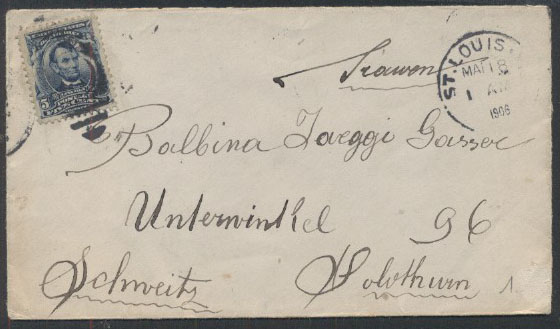 ST. LOUIS
MAR 18
1 AM
1906
Frauen
Balbina Jaeggi Gasser
Unterwinkel 96
Schweitz Solothurn
5